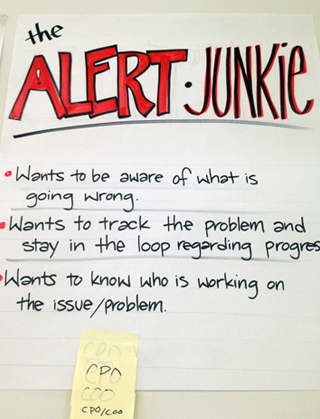 the
ALERT·JUNKIE
• Wants to be aware of what is
going wrong.
• Wants to track the problem and
stay in the loop regarding progres
• Wants to know who is working on
the issue/problem.
CPO
CPO
COO
CPO/COO